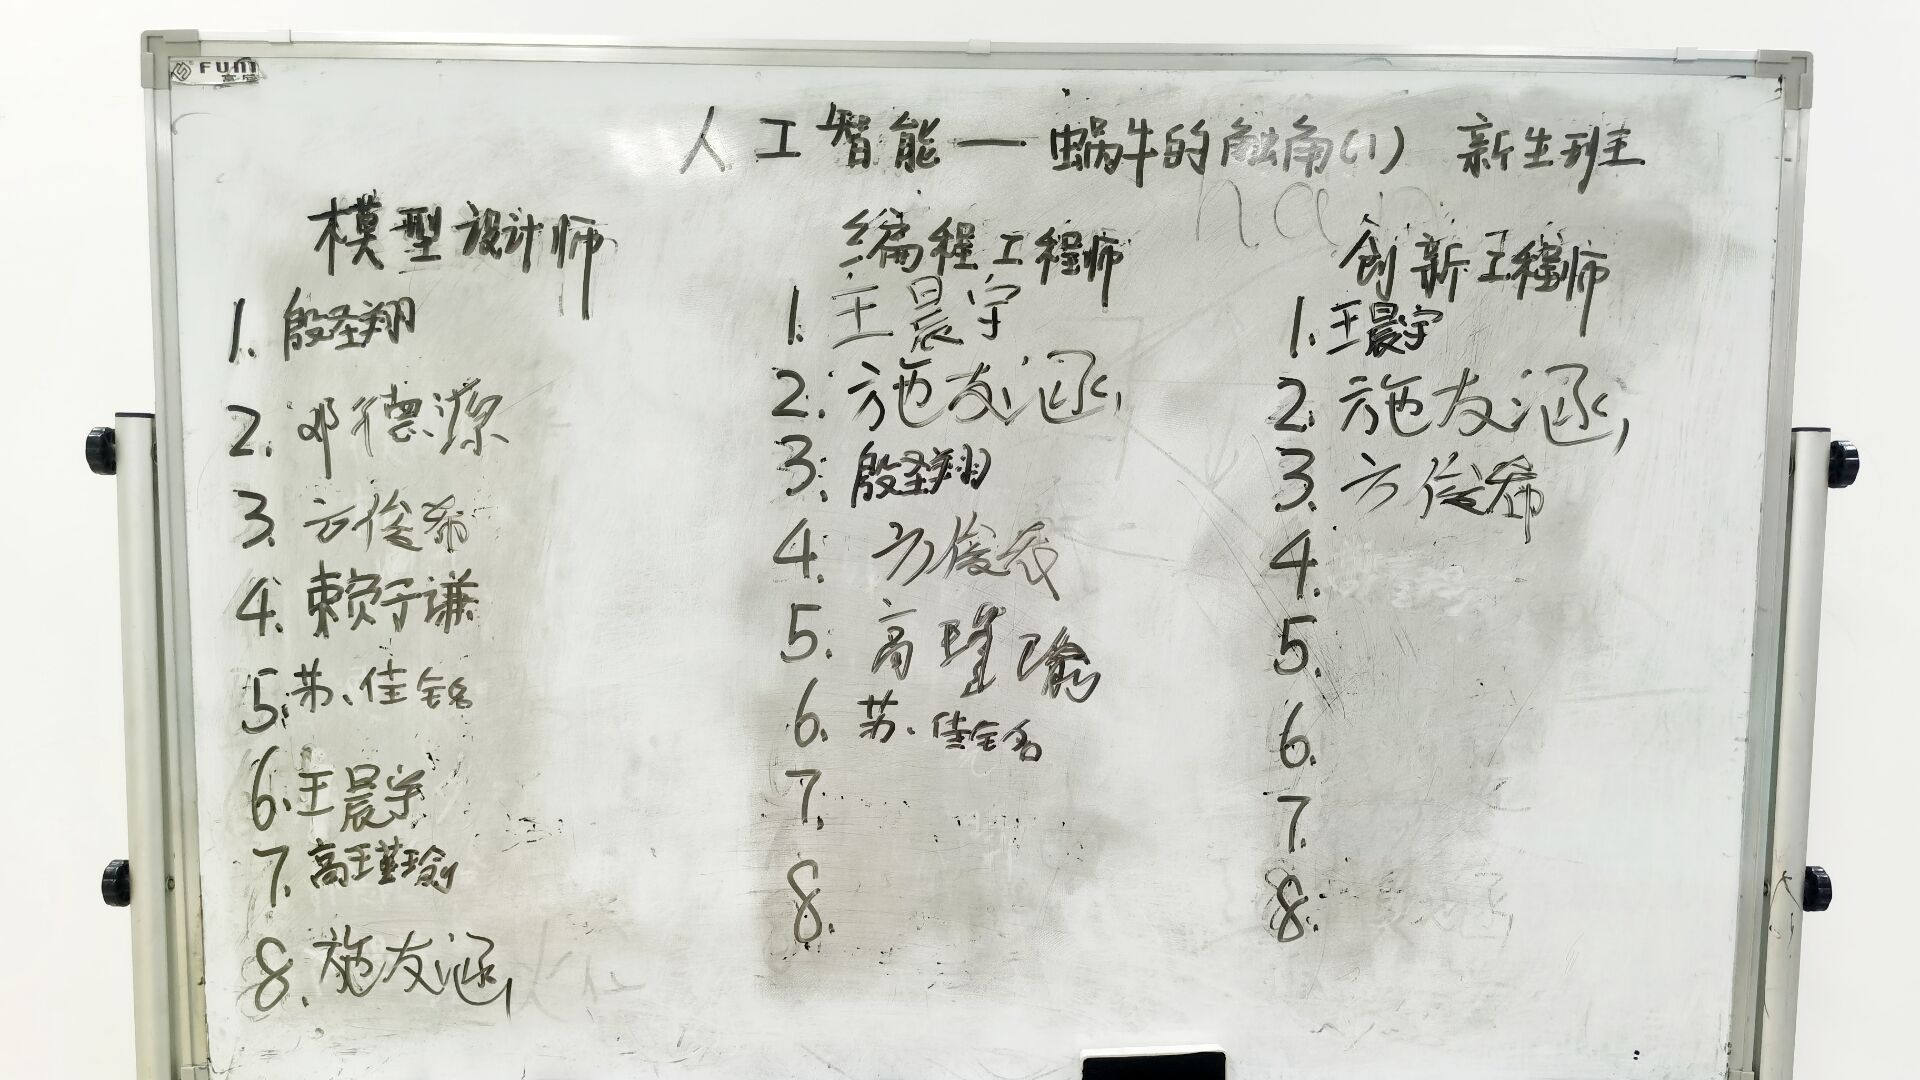 FUNT
人工智能—蜗牛的触角(1) 新生班
模型设计师
1. 殷圣翔
2. 邓德潆
3. 方俊希
4. 赖于谦
5. 苏佳铭
6. 王晨宇
7. 高瑾瑜
8. 施友涵
编程工程师
1. 王晨宇
2. 施友涵
3. 殷圣翔
4. 方俊希
5. 高瑾瑜
6. 苏佳铭
7.
8.
创新工程师
1. 王晨宇
2. 施友涵
3. 方俊希
4.
5.
6.
7.
8.